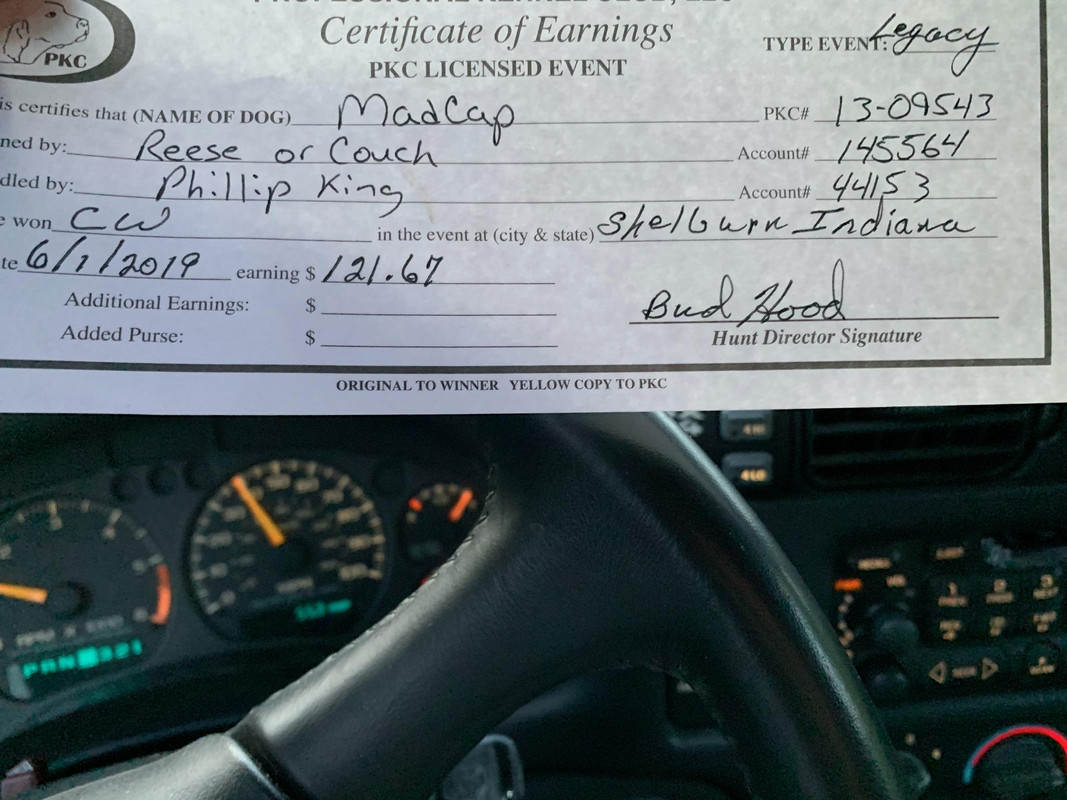 Certificate of Earnings
TYPE EVENT: Legacy
PKC
PKC LICENSED EVENT
is certifies that (NAME OF DOG) MadCap PKC# 13-09543
ned by: Reese or Couch Account# 145564
dled by: Phillip King Account# 44153
e won CW in the event at (city & state) Shelburn Indiana
te 6/1/2019 earning $ 121.67
Additional Earnings: $
Bud Hood
Added Purse: $
Hunt Director Signature
ORIGINAL TO WINNER YELLOW COPY TO PKC